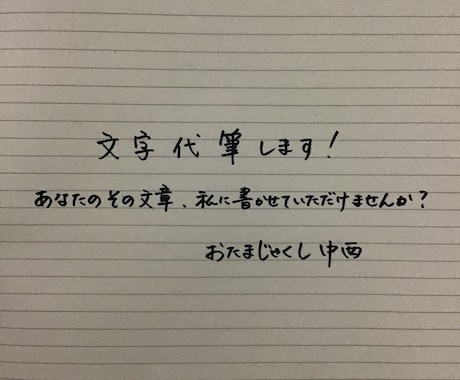 文字代筆します!
あなたのその文章、私に書かせていただけませんか?
おたまじゃくし中西